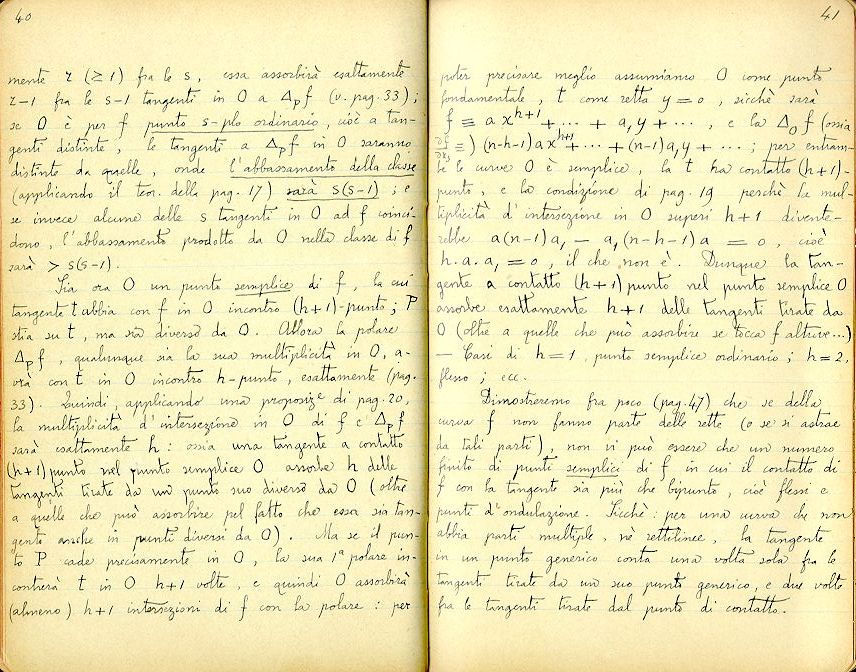 40
mente r (≥1) fra le s, essa assorbirà esattamente
r−1 fra le s−1 tangenti in O a Δ_P f (v. pag. 33);
se O è per f punto s-plo ordinario, cioè a tan-
genti distinte, le tangenti a Δ_P f in O saranno
distinte da quelle, onde l'abbassamento della classe
(applicando il teor. della pag. 17) sarà s(s−1); e
se invece alcune delle s tangenti in O ad f coinci-
dono, l'abbassamento prodotto da O nella classe di f
sarà > s(s−1).
Sia ora O un punto semplice di f, la cui
tangente t abbia con f in O incontro (h+1)-punto; P
stia su t, ma sia diverso da O. Allora la polare
Δ_P f, qualunque sia la sua multiplicità in O, a-
vrà con t in O incontro h-punto, esattamente (pag.
33). Quindi, applicando una proposiz.e di pag. 20,
la multiplicità d'intersezione in O di f e Δ_P f
sarà esattamente h: ossia una tangente a contatto
(h+1)punto nel punto semplice O assorbe h delle
tangenti tirate da un punto suo diverso da O (oltre
a quelle che può assorbire pel fatto che essa sia tan-
gente anche in punti diversi da O). Ma se il pun-
to P cade precisamente in O, la sua 1ª polare in-
contrerà t in O h+1 volte, e quindi O assorbirà
(almeno) h+1 intersezioni di f con la polare: per
41
poter precisare meglio assumiamo O come punto
fondamentale, t come retta y=0, sicchè sarà
f ≡ a x^{h+1} + ... + a₁y + ... , e la Δ_O f (ossia
∂f/∂x₃ ≡) (n−h−1) a x^{h+1} + ... + (n−1)a₁y + ... ; per entram-
be le curve O è semplice, la t ha contatto (h+1)-
punto, e la condizione di pag. 19 perchè la mul-
tiplicità d'intersezione in O superi h+1 divente-
rebbe a(n−1)a₁ − a₁(n−h−1)a = 0, cioè
h.a.a₁ = 0, il che non è. Dunque la tan-
gente a contatto (h+1)punto nel punto semplice O
assorbe esattamente h+1 delle tangenti tirate da
O (oltre a quelle che può assorbire se tocca f altrove...)
— Casi di h=1, punto semplice ordinario; h=2,
flesso; ecc.
Dimostreremo fra poco (pag. 47) che se della
curva f non fanno parte delle rette (o se si astrae
da tali parti), non vi può essere che un numero
finito di punti semplici di f in cui il contatto di
f con la tangente sia più che bipunto, cioè flessi e
punti d'ondulazione. Sicchè: per una curva che non
abbia parti multiple, nè rettilinee, la tangente
in un punto generico conta una volta sola fra le
tangenti tirate da un suo punto generico, e due volte
fra le tangenti tirate dal punto di contatto.